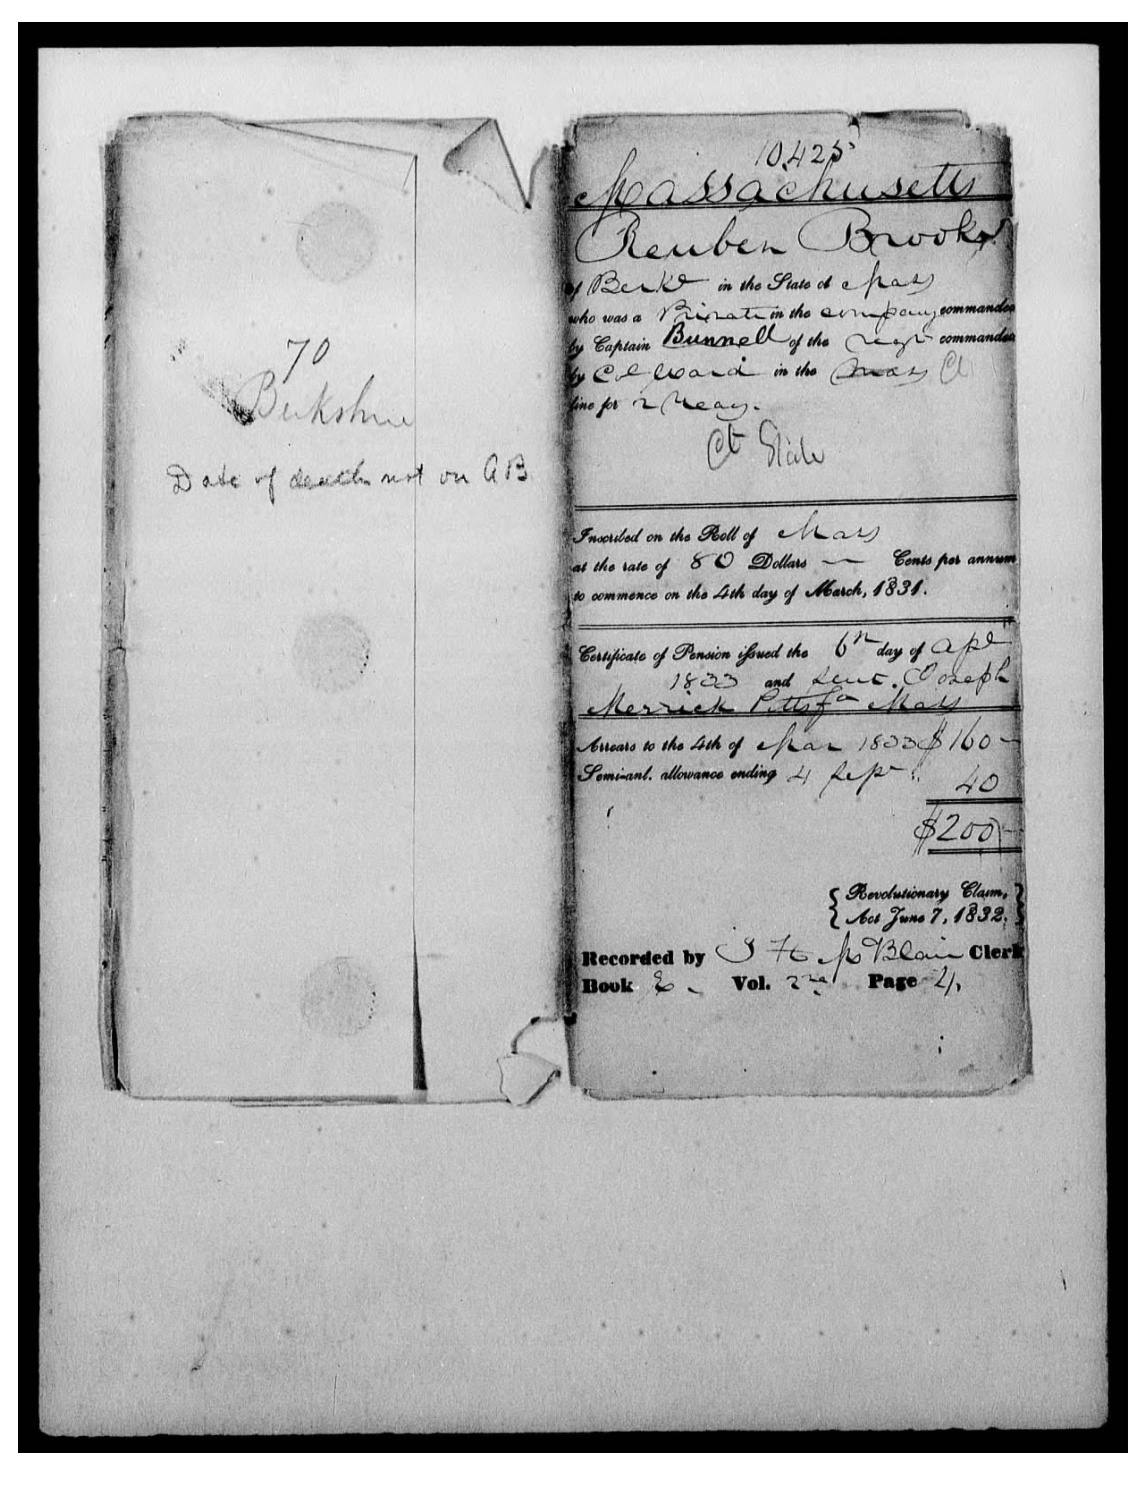 70
Berkshire
Date of death not on AB
10,425
Massachusetts
Reuben Brooks
of Berke in the State of Mass
who was a Private in the company commanded
by Captain Bunnell of the regt commanded
by Col Ward in the Mass Ct
line for 2 years.
Ct State
Inscribed on the Roll of Mass
at the rate of 80 Dollars — Cents per annum
to commence on the 4th day of March, 1831.
Certificate of Pension issued the 6th day of Apl
1833 and sent. Joseph
Merrick Pittsfd Mass
Arrears to the 4th of Mar 1833 $160 -
Semi-anl. allowance ending 4 Sept " 40
$200 -
Revolutionary Claim,
Act June 7, 1832.
Recorded by Blair Clerk
Book E. Vol. Page 4.